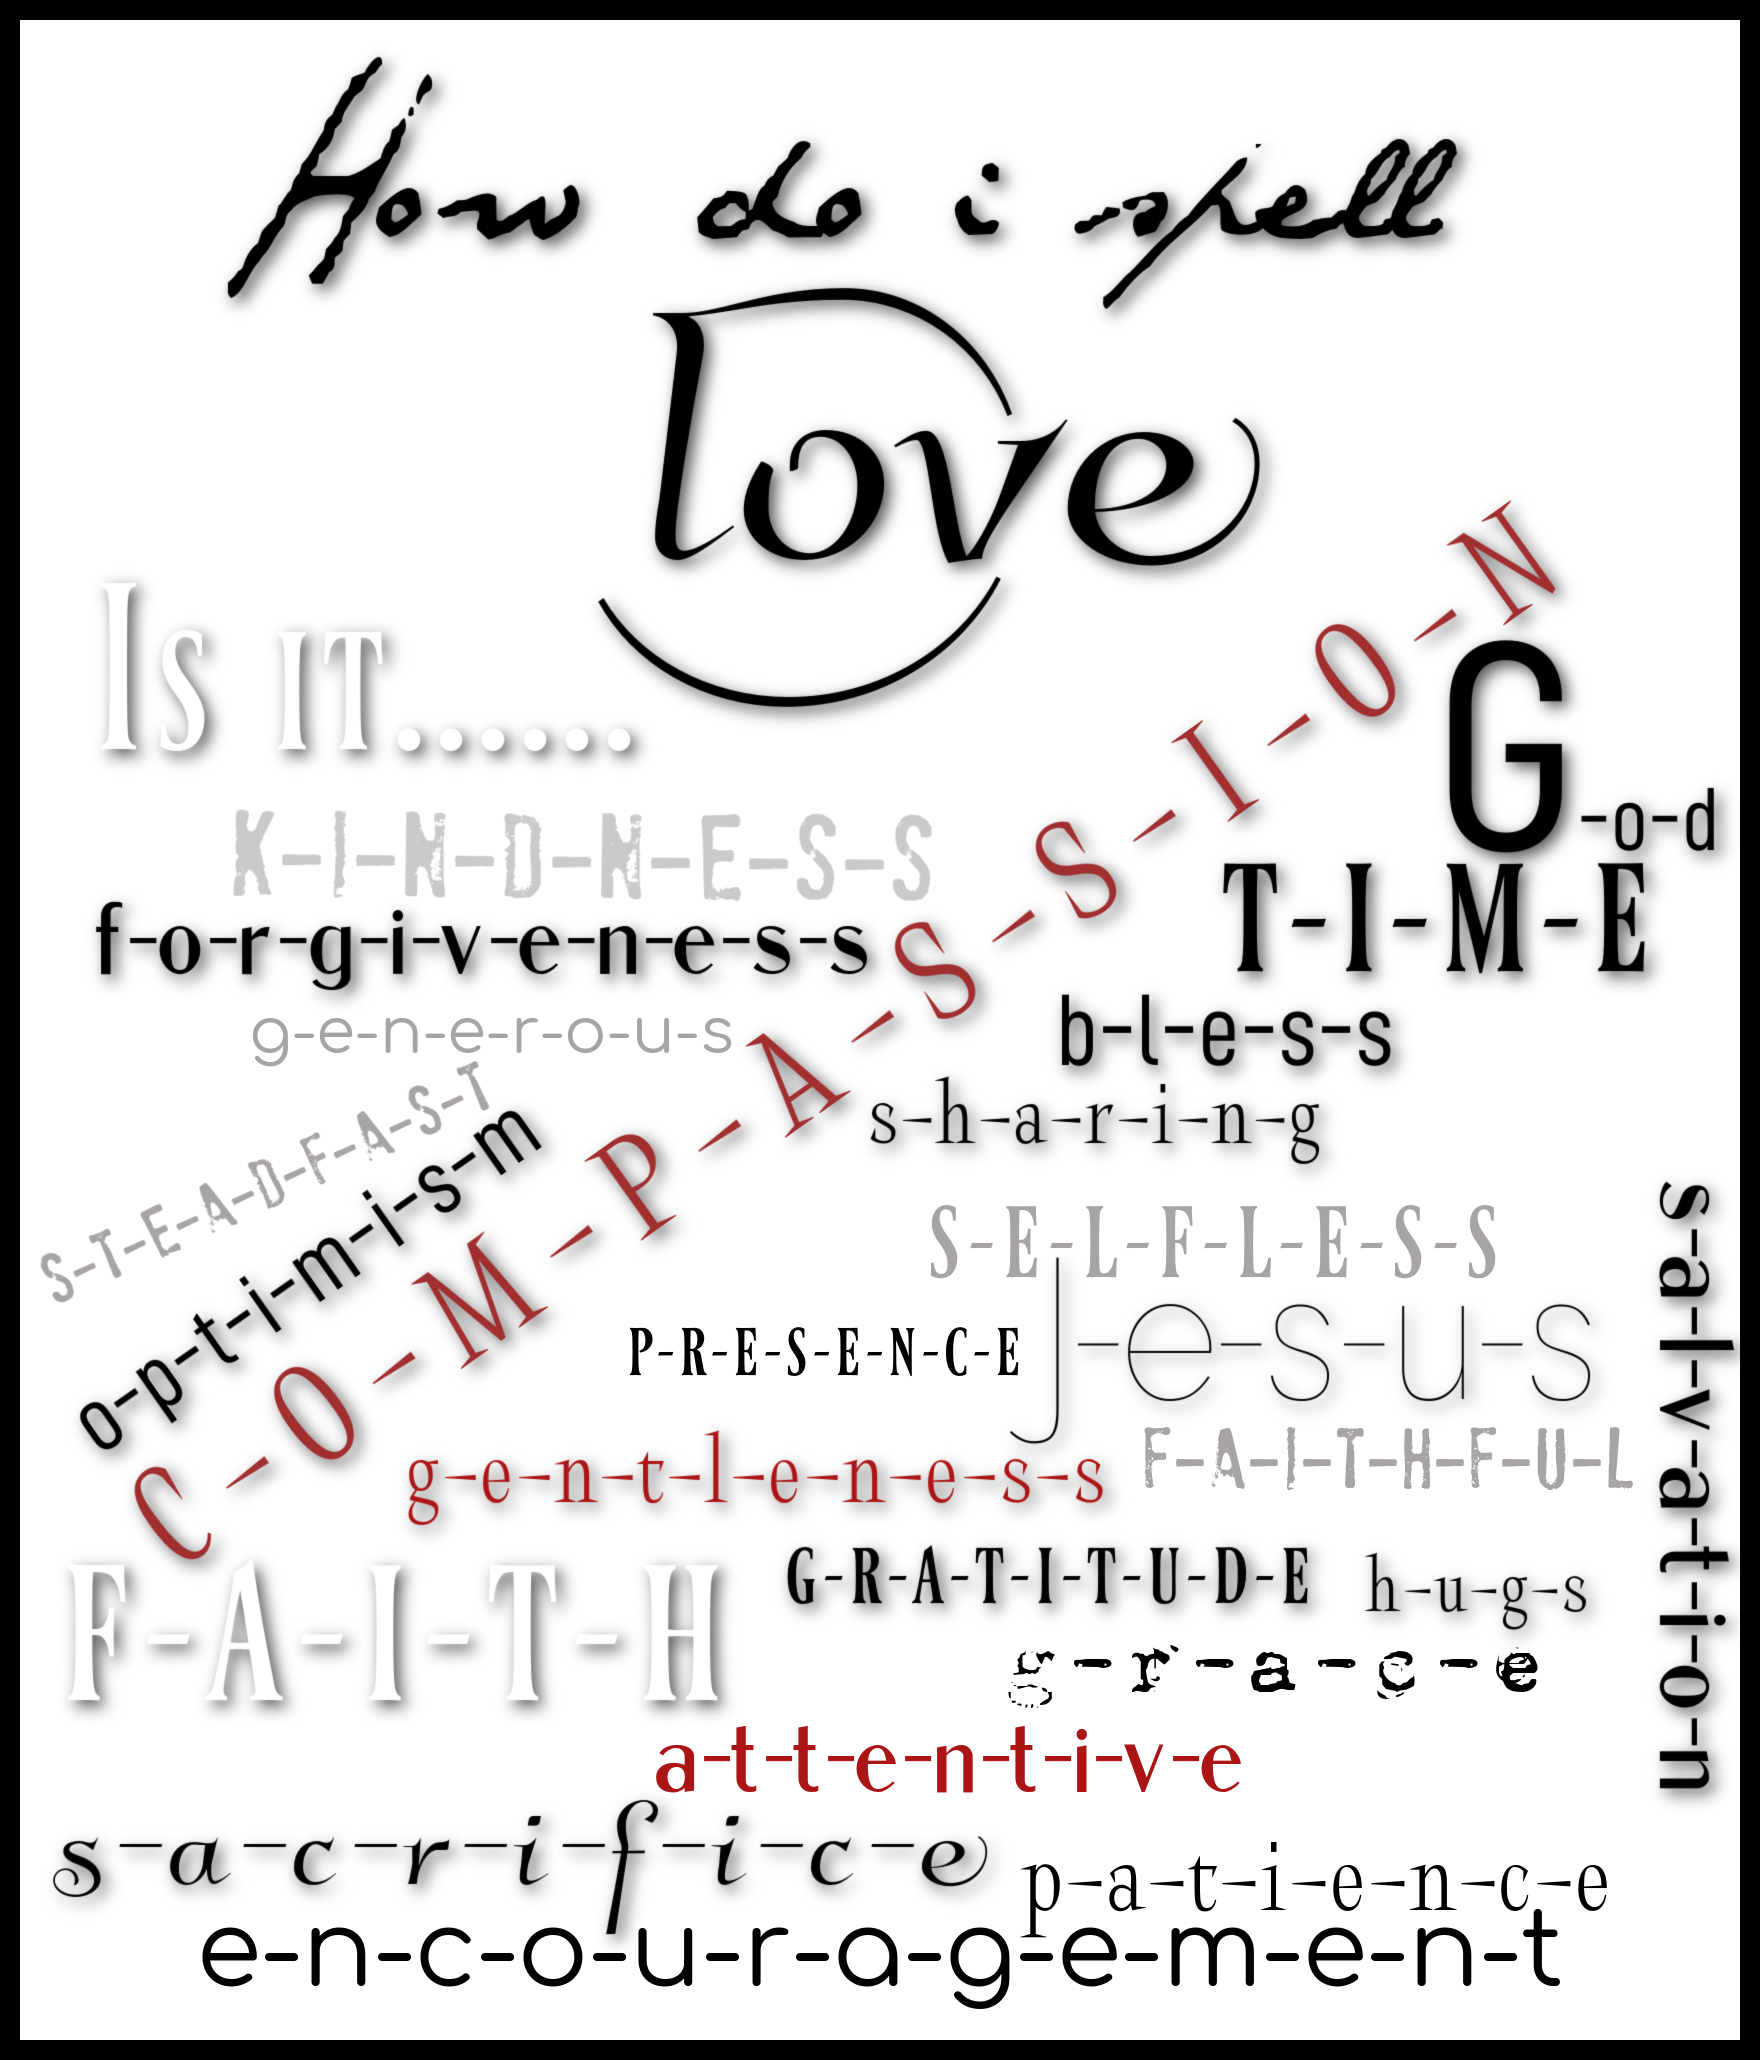 How do i spell
love
Is it......
C-O-M-P-A-S-S-I-O-N
G-o-d
K-I-N-D-N-E-S-S
T-I-M-E
f-o-r-g-i-v-e-n-e-s-s
g-e-n-e-r-o-u-s
b-l-e-s-s
s-h-a-r-i-n-g
S-T-E-A-D-F-A-S-T
o-p-t-i-m-i-s-m
S-E-L-F-L-E-S-S
s-a-l-v-a-t-i-o-n
P-R-E-S-E-N-C-E
J-e-s-u-s
g-e-n-t-l-e-n-e-s-s
F-A-I-T-H-F-U-L
F-A-I-T-H
G-R-A-T-I-T-U-D-E
h-u-g-s
g-r-a-c-e
a-t-t-e-n-t-i-v-e
s-a-c-r-i-f-i-c-e
p-a-t-i-e-n-c-e
e-n-c-o-u-r-a-g-e-m-e-n-t